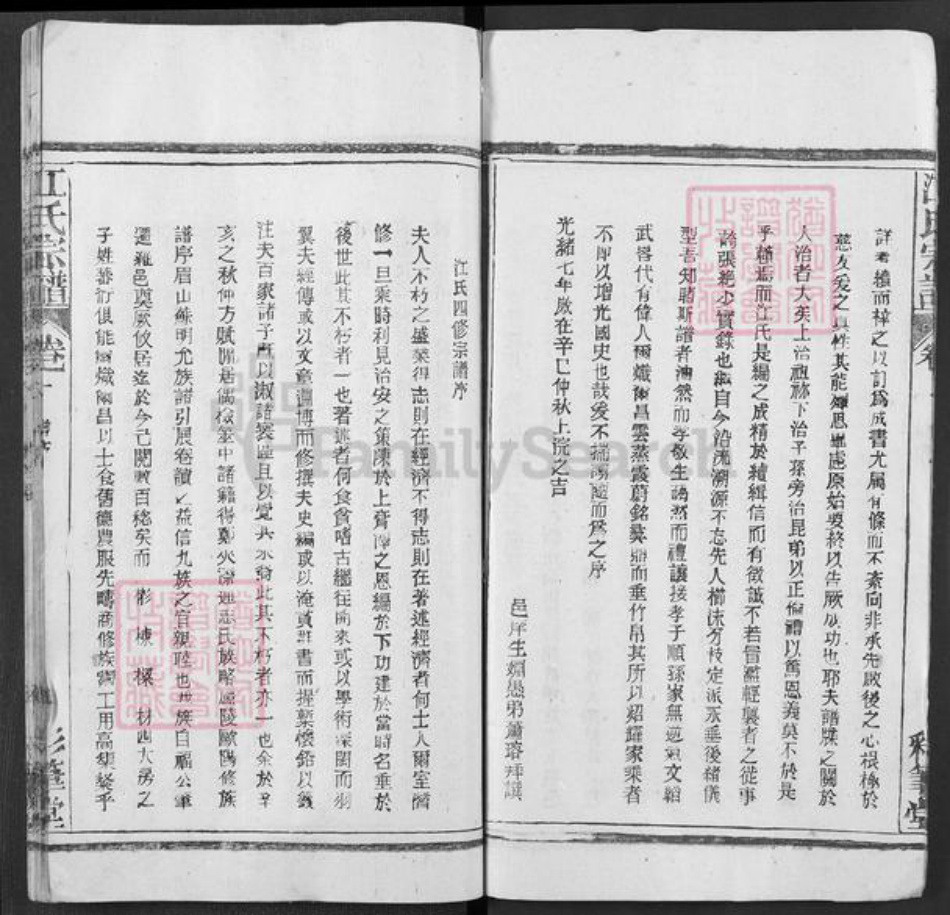 詳考維而梓之以訂為成書尤屬有條而不紊向非承先啟後之心根極於
慈友愛之真性其能殫思竭慮原始要終以告厥成功也耶夫譜牒之關於
人治者大矣上治祖禰下治子孫旁治昆弟以正倫禮以篤恩義莫不於是
乎稽焉而江氏是編之成精於纘緝信而有徵誠不若冒濫輕襲者之從事
張絕少實錄也繼自今沿流溯源不忘先人櫛沐分枝定派永垂後緒儀
型吾知睹斯譜者油然而孝敬生藹然而禮讓接孝子順孫家無逆氣文韜
武畧代有偉人爾熾爾昌雲蒸霞蔚銘彝鼎而垂竹帛其所以紹耀家乘者
不即以增光國史也哉爰不揣謭陋而為之序
光緒七年歲在辛巳仲秋上浣之吉
邑庠生姻愚弟蕭瑢拜譔
江氏四修宗譜序
夫人不朽之盛業得志則在經濟不得志則在著述經濟者何士人爾室潛
修一旦乘時利見治安之策陳於上膏澤之恩編於下功建於當時名垂於
後世此其不朽者一也著述者何食貧嗜古繼往開來或以學術深閎而羽
翼夫經傳或以文章淵博而修撰夫史編或以淹貫群書而握槧懷鉛以箋
注夫百家諸子可以淑諸裳且以覺此其不朽者亦一也余於辛
亥之秋仲方賦閒居偶檢笥中諸籍得鄭夾漈通志氏族略廬陵歐陽修族
譜序眉山蘇明允族譜引展卷讀之益信九族之宜親睦也世族自福公肇
遷雒邑奠厥攸居迄於今已閱數百稔矣而彬棟櫟材四大房之
子姓蕃衍俱能爾熾爾昌以士食舊德農服先疇商修族鬻工用高曾槼乎
江氏宗譜 卷一
彩筆堂
江氏宗譜 卷
彩筆堂
FamilySearch